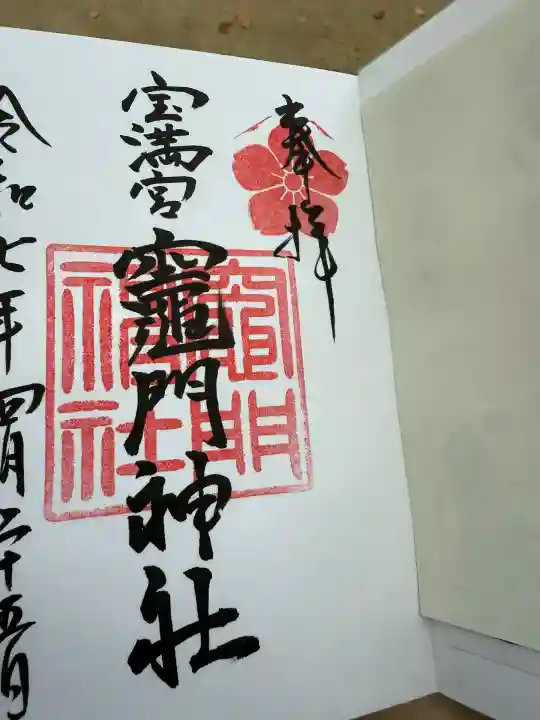 奉拝
宝満宮
竈門神社
竈門
神社
令和七年四月二十五日